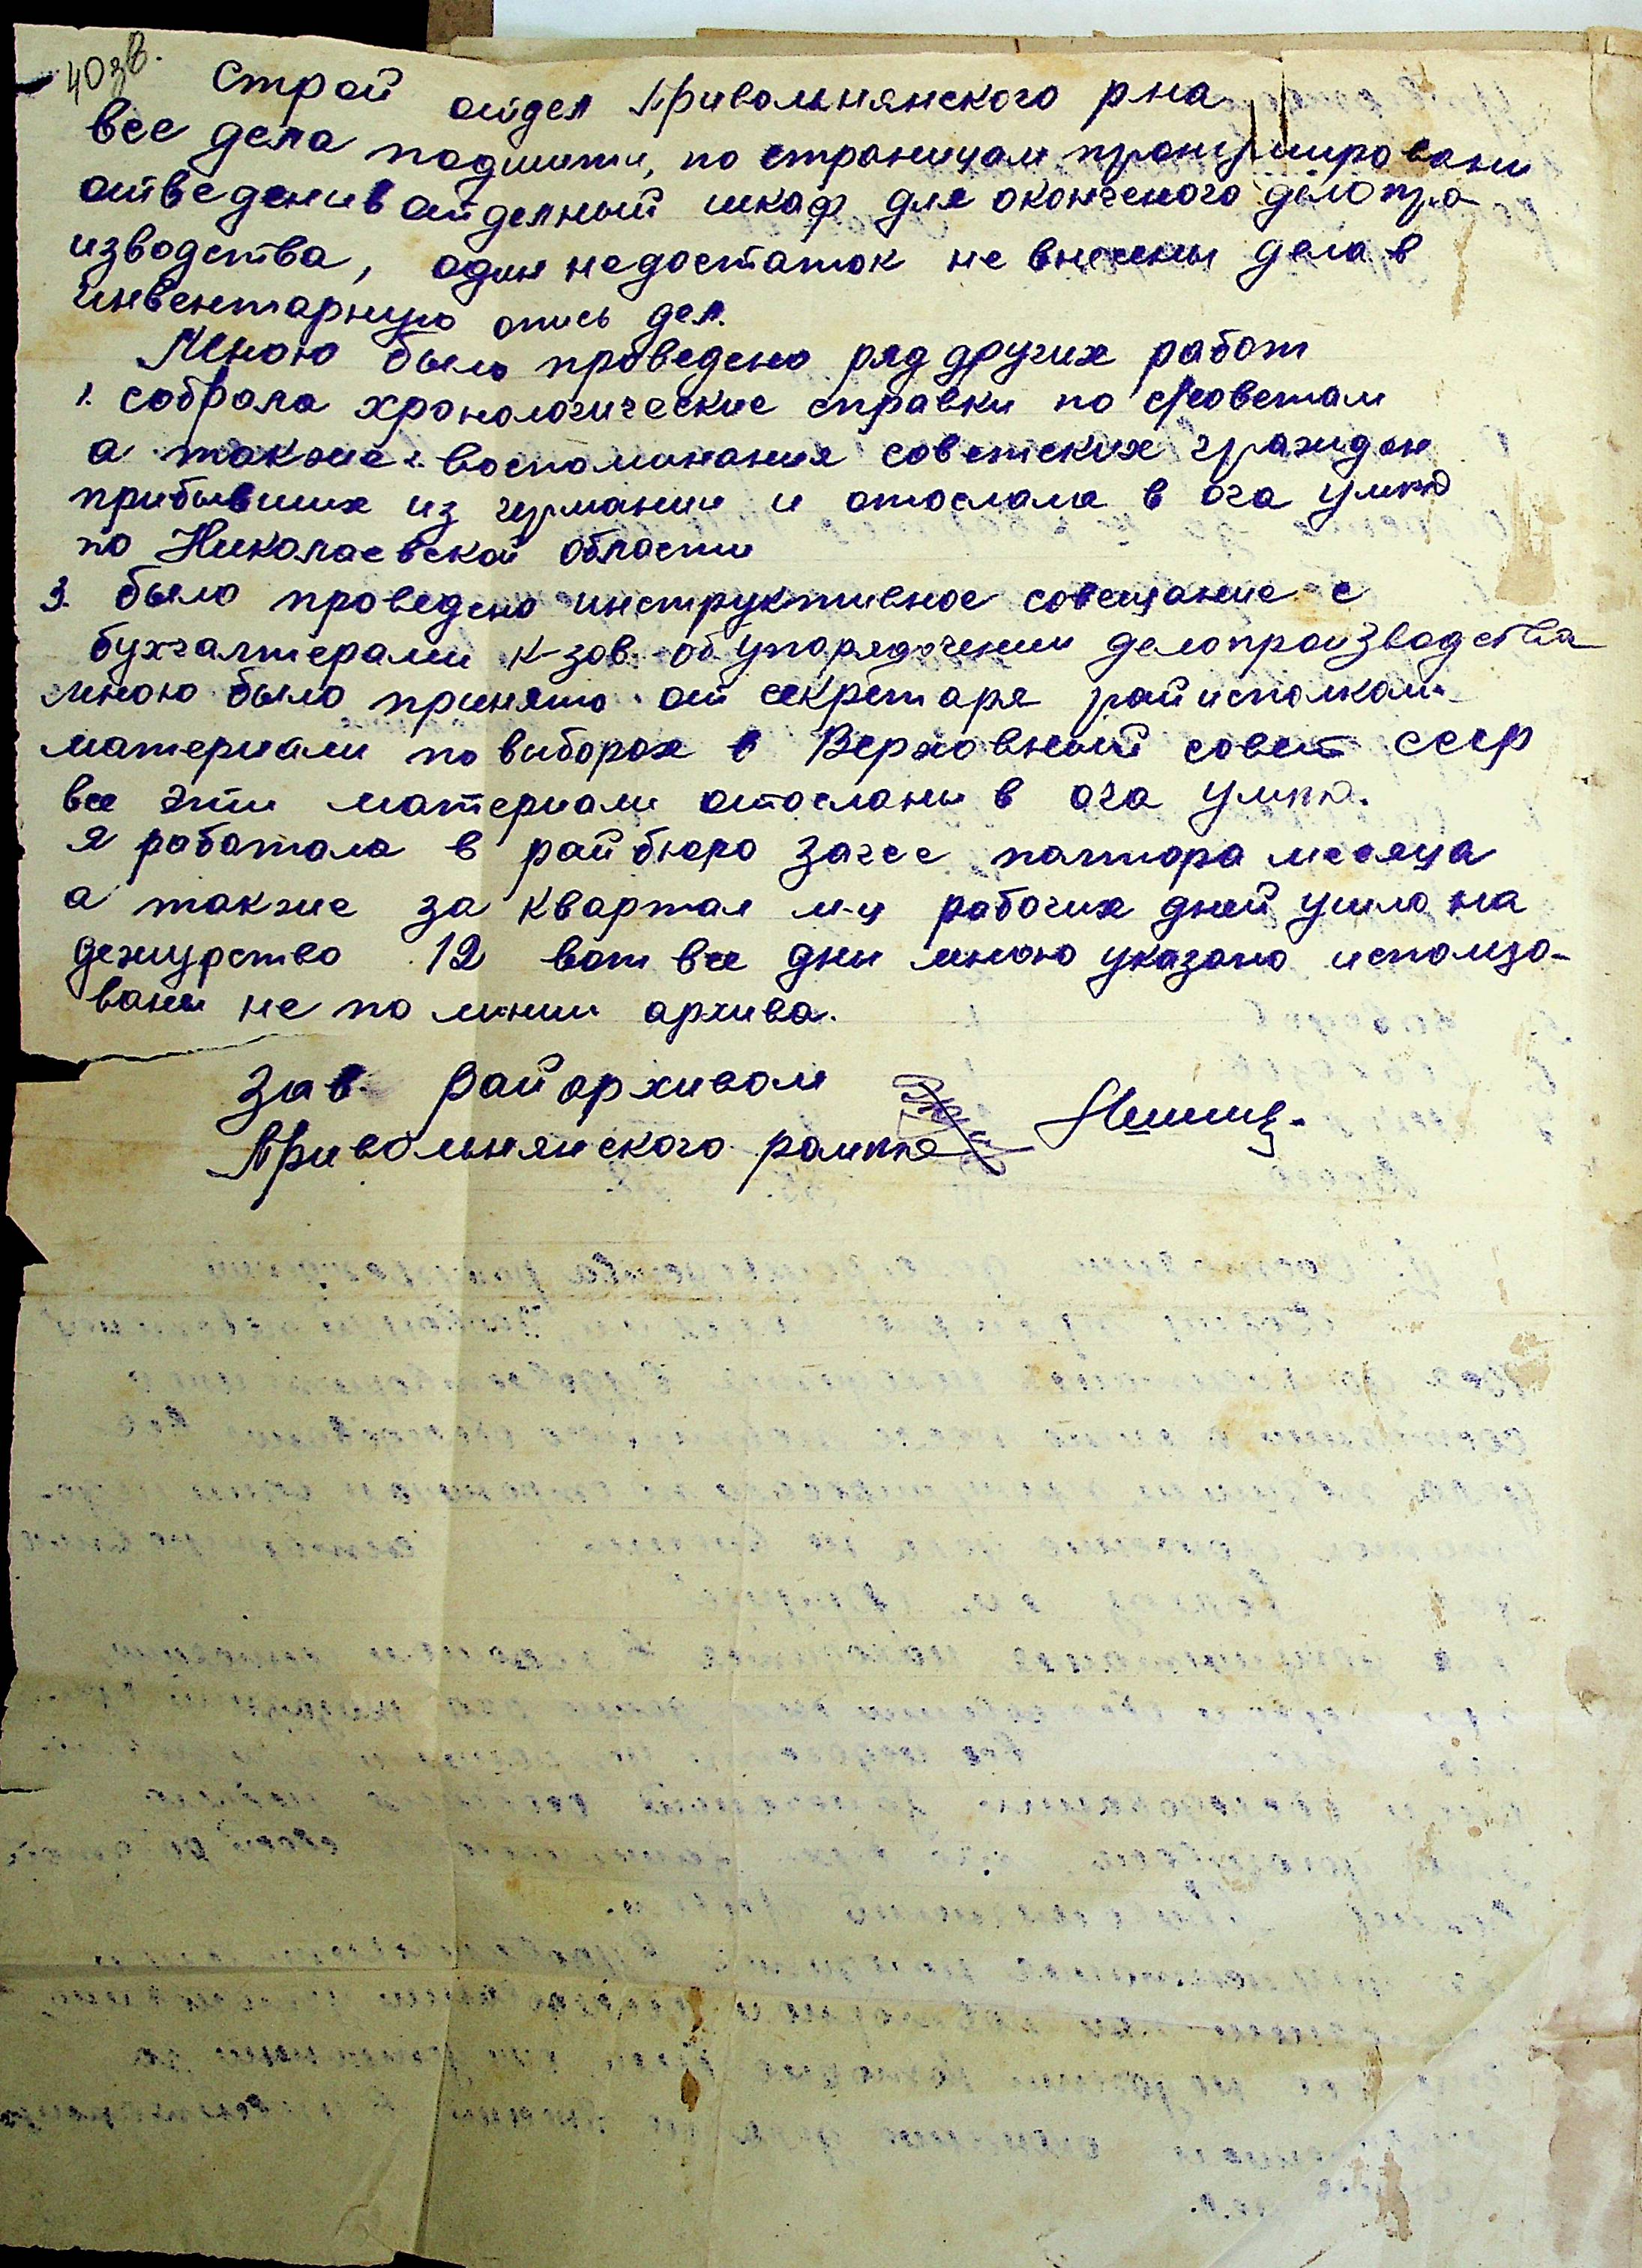 40зв.
Строй отдел Привольнянского рна
все дела подшити, по страницам пронумировани
отведени в отделный шкаф для оконченого делопро-
изводства, один недостаток не внесены дела в
инвентарную опись дел.
Мною было проведено ряд других работ
1. собрала хронологические справки по с/советам
а также воспоминания советских граждан
прибывших из германии и отослала в ога умвд
по Николаевской области
3. было проведено инструктивное совещание с
бухгалтерами к-зов. об упорядочении делопроизводства
мною было принято от секретаря райисполкома
материали по виборах в Верховный совет ссср
все эти материали отослани в ога умвд.
я работала в райбюро загсе полтора месяца
а также за квартал м-ц рабочих дней ушло на
дежурство 12 вот все дни мною указано использо-
ваны не по линии архива.
Зав. Райархивом
Привольнянского